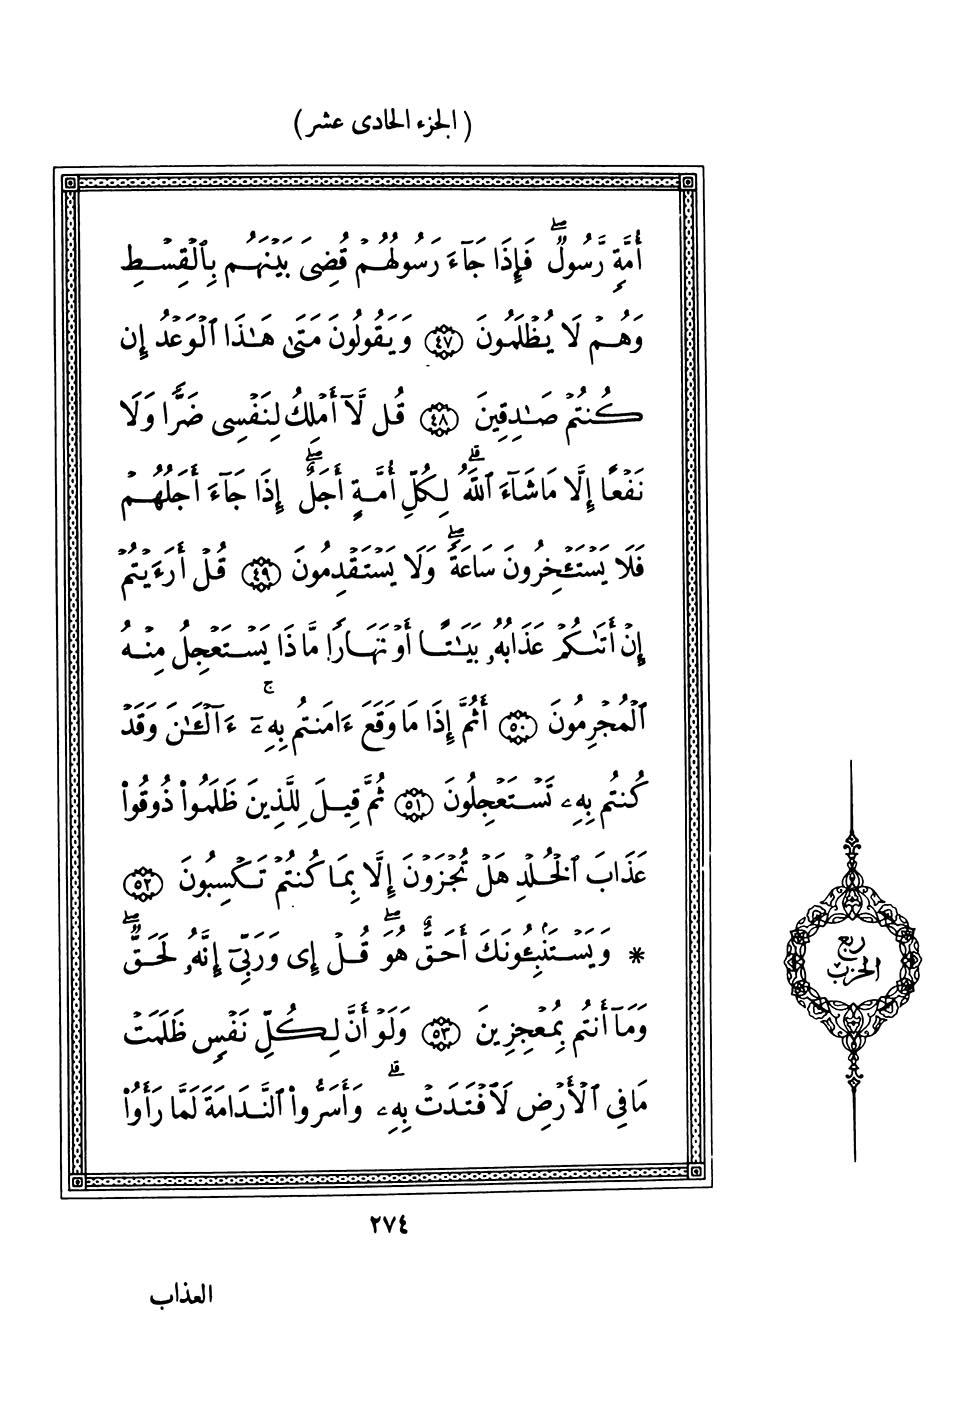 ( الجزء الحادى عشر )
أُمَّةٍ رَّسُولٌ ۖ فَإِذَا جَآءَ رَسُولُهُمْ قُضِىَ بَيْنَهُم بِٱلْقِسْطِ
وَهُمْ لَا يُظْلَمُونَ ﴿٤٧﴾ وَيَقُولُونَ مَتَىٰ هَـٰذَا ٱلْوَعْدُ إِن
كُنتُمْ صَـٰدِقِينَ ﴿٤٨﴾ قُل لَّآ أَمْلِكُ لِنَفْسِى ضَرًّا وَلَا
نَفْعًا إِلَّا مَا شَآءَ ٱللَّهُ ۗ لِكُلِّ أُمَّةٍ أَجَلٌ ۖ إِذَا جَآءَ أَجَلُهُمْ
فَلَا يَسْتَـْٔخِرُونَ سَاعَةً ۖ وَلَا يَسْتَقْدِمُونَ ﴿٤٩﴾ قُلْ أَرَءَيْتُمْ
إِنْ أَتَىٰكُمْ عَذَابُهُۥ بَيَـٰتًا أَوْ نَهَارًا مَّاذَا يَسْتَعْجِلُ مِنْهُ
ٱلْمُجْرِمُونَ ﴿٥٠﴾ أَثُمَّ إِذَا مَا وَقَعَ ءَامَنتُم بِهِۦٓ ۚ ءَآلْـَٔـٰنَ وَقَدْ
كُنتُم بِهِۦ تَسْتَعْجِلُونَ ﴿٥١﴾ ثُمَّ قِيلَ لِلَّذِينَ ظَلَمُوا۟ ذُوقُوا۟
عَذَابَ ٱلْخُلْدِ هَلْ تُجْزَوْنَ إِلَّا بِمَا كُنتُمْ تَكْسِبُونَ ﴿٥٢﴾
* وَيَسْتَنۢبِـُٔونَكَ أَحَقٌّ هُوَ ۖ قُلْ إِى وَرَبِّىٓ إِنَّهُۥ لَحَقٌّ ۖ
وَمَآ أَنتُم بِمُعْجِزِينَ ﴿٥٣﴾ وَلَوْ أَنَّ لِكُلِّ نَفْسٍ ظَلَمَتْ
مَا فِى ٱلْأَرْضِ لَٱفْتَدَتْ بِهِۦ ۗ وَأَسَرُّوا۟ ٱلنَّدَامَةَ لَمَّا رَأَوُا۟
ربع
الحزب
٢٧٤
العذاب